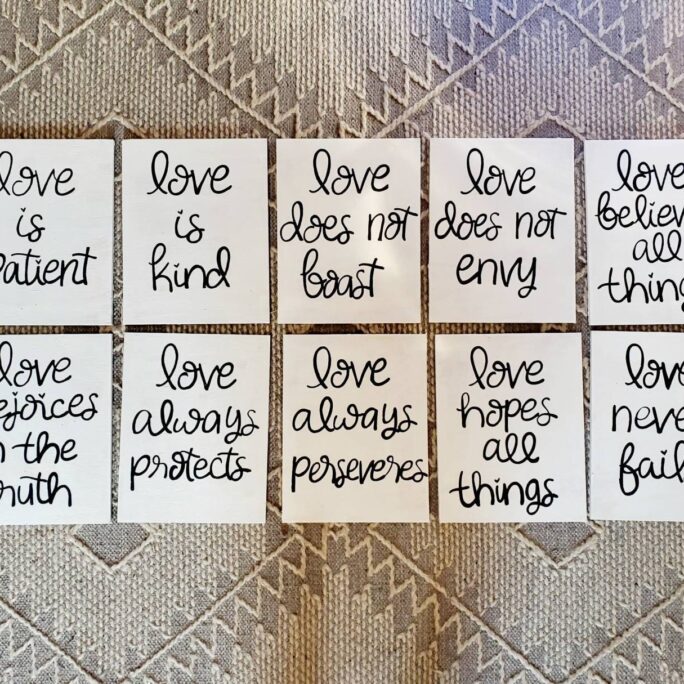 love
is
patient
love
is
kind
love
does not
boast
love
does not
envy
love
believ
all
thing
love
ejoices
n the
ruth
love
always
protects
love
always
perseveres
love
hopes
all
things
love
neve
fail